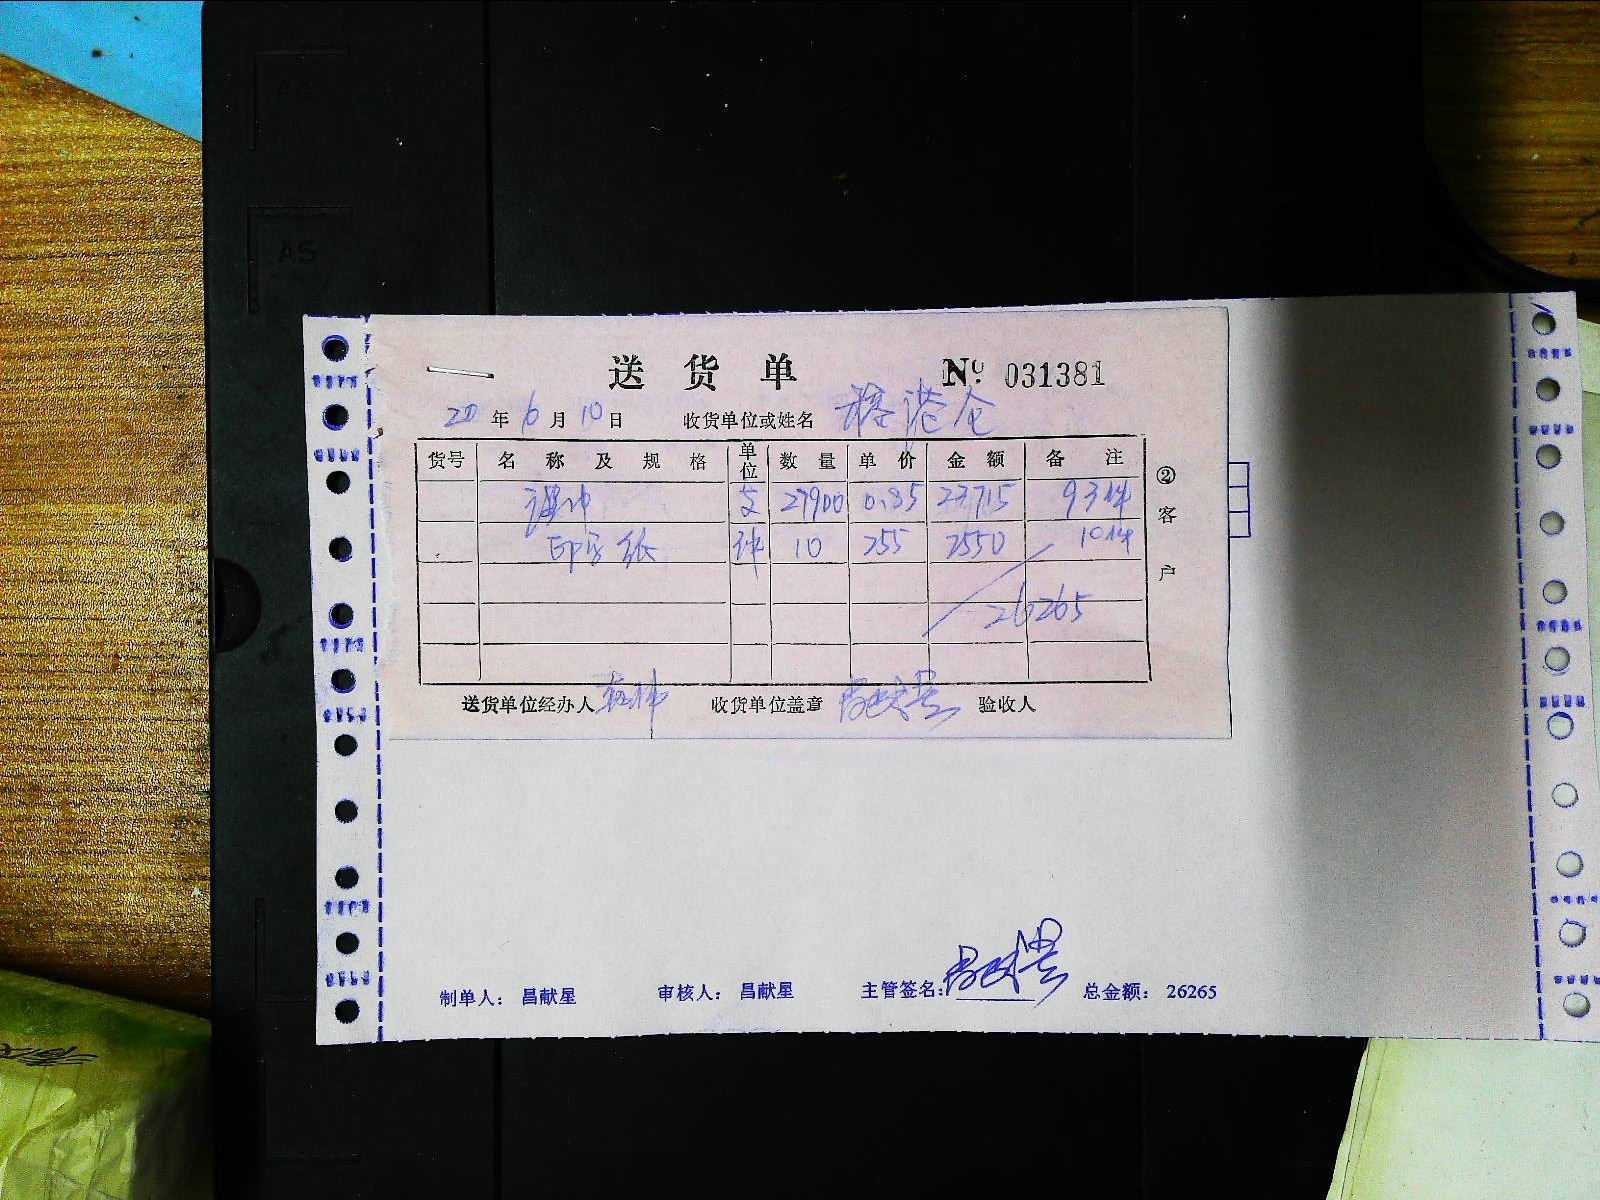 A4
A5
送货单 № 031381
20年6月10日 收货单位或姓名 港仓
货号 名称及规格 单位 数量 单价 金额 备注
支 27900 0.85 23715 93件
印字纸 件 10 255 2550 10件
26265
② 客户
送货单位经办人 收货单位盖章 昌献星 验收人
制单人： 昌献星 审核人： 昌献星 主管签名： 昌献星 总金额： 26265